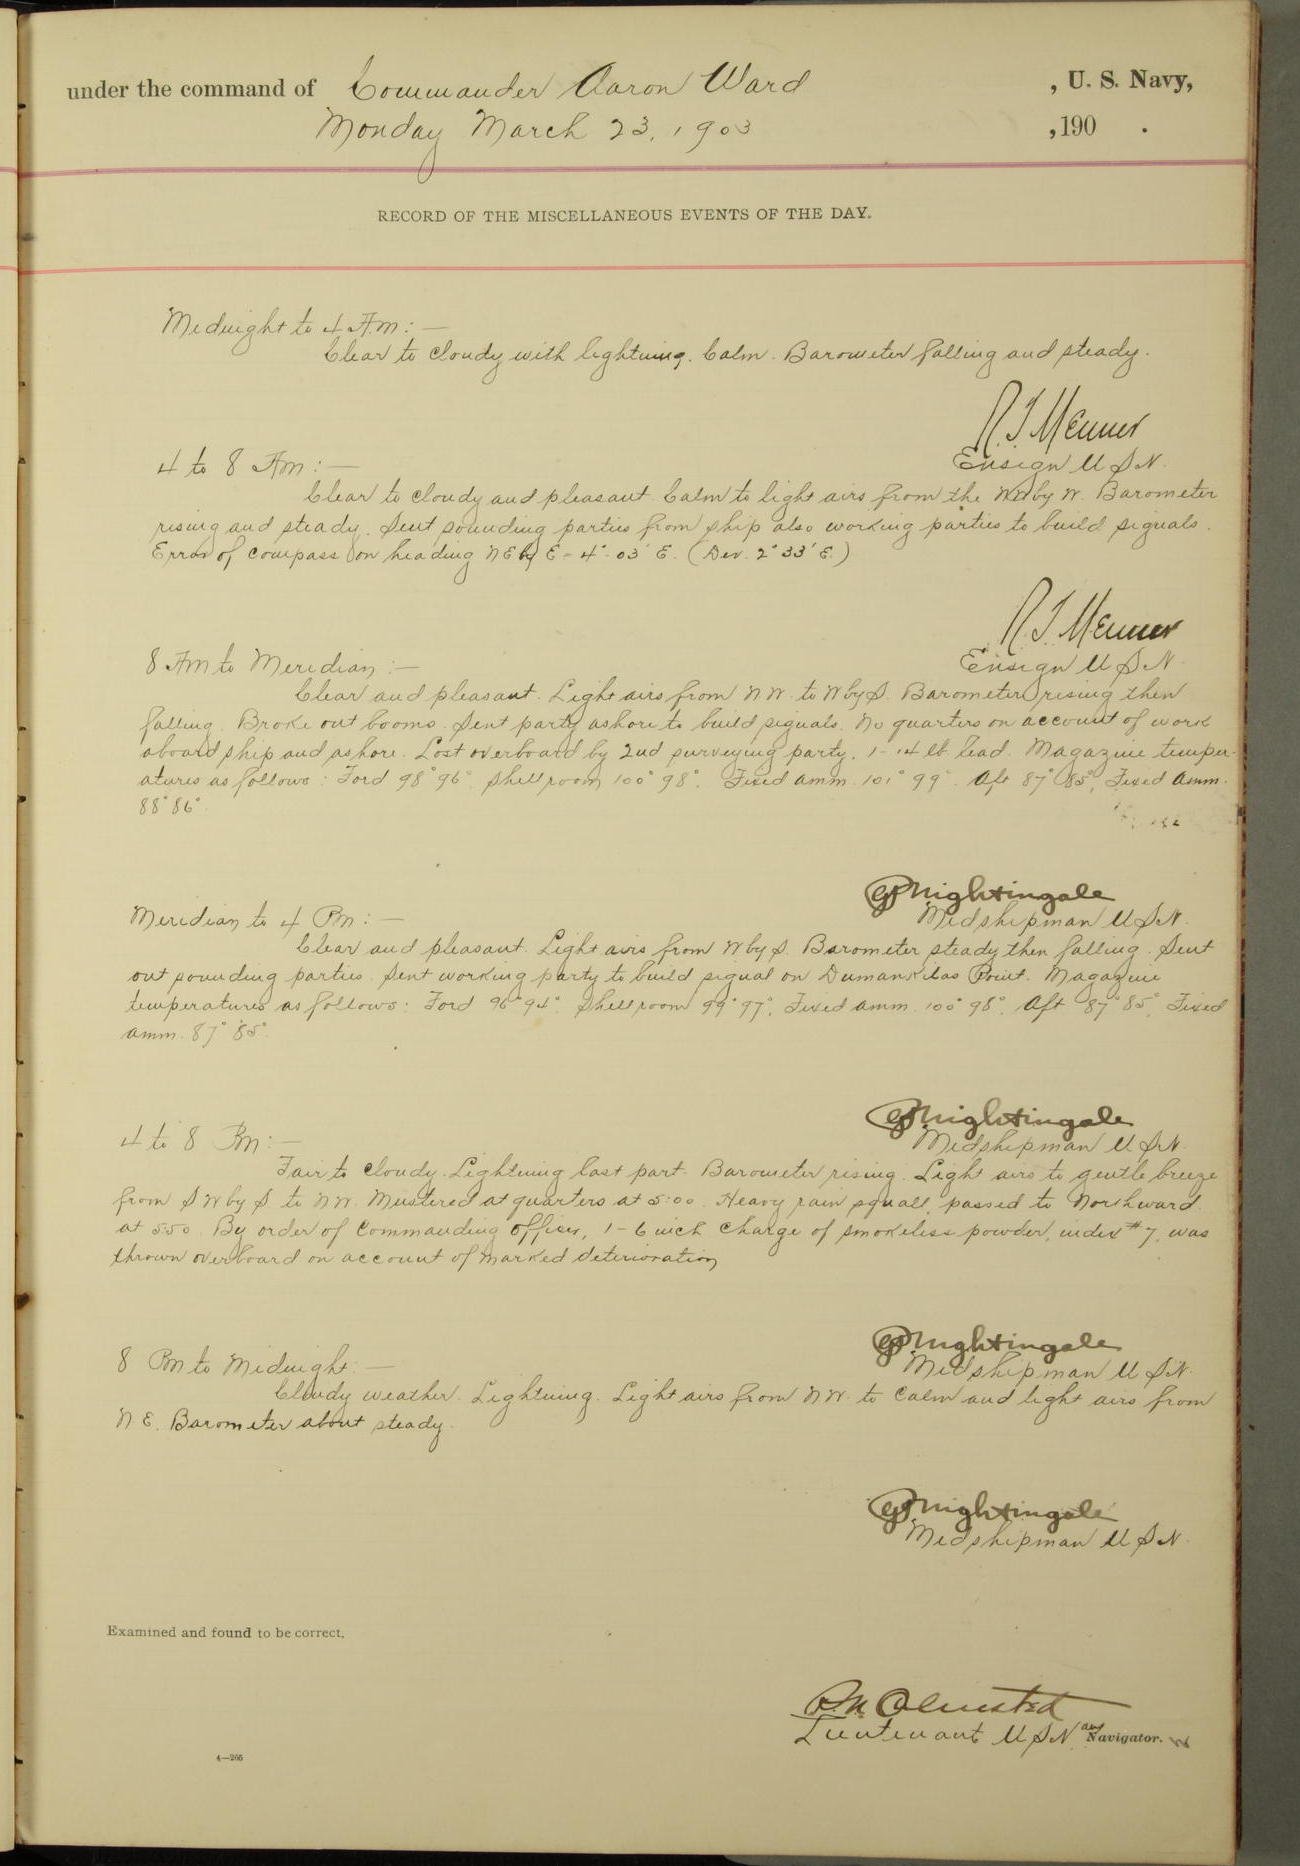 under the command of Commander Aaron Ward , U. S. Navy,
Monday March 23, 1903 , 190 .
RECORD OF THE MISCELLANEOUS EVENTS OF THE DAY.
Midnight to 4 A.m: —
Clear to cloudy with lightning. Calm. Barometer falling and steady.
R. T. Menner
Ensign U S N.
4 to 8 Am: —
Clear to cloudy and pleasant. Calm to light airs from the NW by W. Barometer
rising and steady. Sent sounding parties from ship also working parties to build signals.
Error of compass on heading NE by E - 4° 03' E. (Dev. 2° 33' E.)
R. T. Menner
Ensign U S N.
8 Am to Meridian: —
Clear and pleasant. Light airs from N W. to W by S. Barometer rising then
falling. Broke out booms. Sent party ashore to build signals. No quarters on account of work
aboard ship and ashore. Lost overboard by 2nd surveying party, 1 - 14 lb. lead. Magazine temper-
atures as follows: Ford 98° 96°. Shellroom 100° 98°. Fixed amm. 101° 99°. Aft 87° 85°, Fixed Amm.
88° 86°.
Nightingale
Midshipman U S N.
Meridian to 4 Pm: —
Clear and pleasant. Light airs from W. by S. Barometer steady then falling. Sent
out sounding parties. Sent working party to build signal on Dumankilas Point. Magazine
temperatures as follows: Ford 96° 94°. Shellroom 99° 97°, Fixed amm. 100° 98°. Aft 87° 85°, Fixed
amm. 87° 85°.
Nightingale
Midshipman U S N.
4 to 8 Pm: —
Fair to cloudy. Lightning last part. Barometer rising. Light airs to gentle breeze
from S W by S to N W. Mustered at quarters at 5:00. Heavy rain squall, passed to Northward
at 5 50. By order of Commanding Officer, 1 - 6 inch charge of smokeless powder, index # 7, was
thrown overboard on account of marked deterioration
Nightingale
Midshipman U S N.
8 Pm to Midnight: —
Cloudy weather. Lightning. Light airs from N W. to calm and light airs from
N E. Barometer about steady.
Nightingale
Midshipman U S N.
Examined and found to be correct.
P. N. Olmsted
Lieutenant U S N and Navigator.
4—266